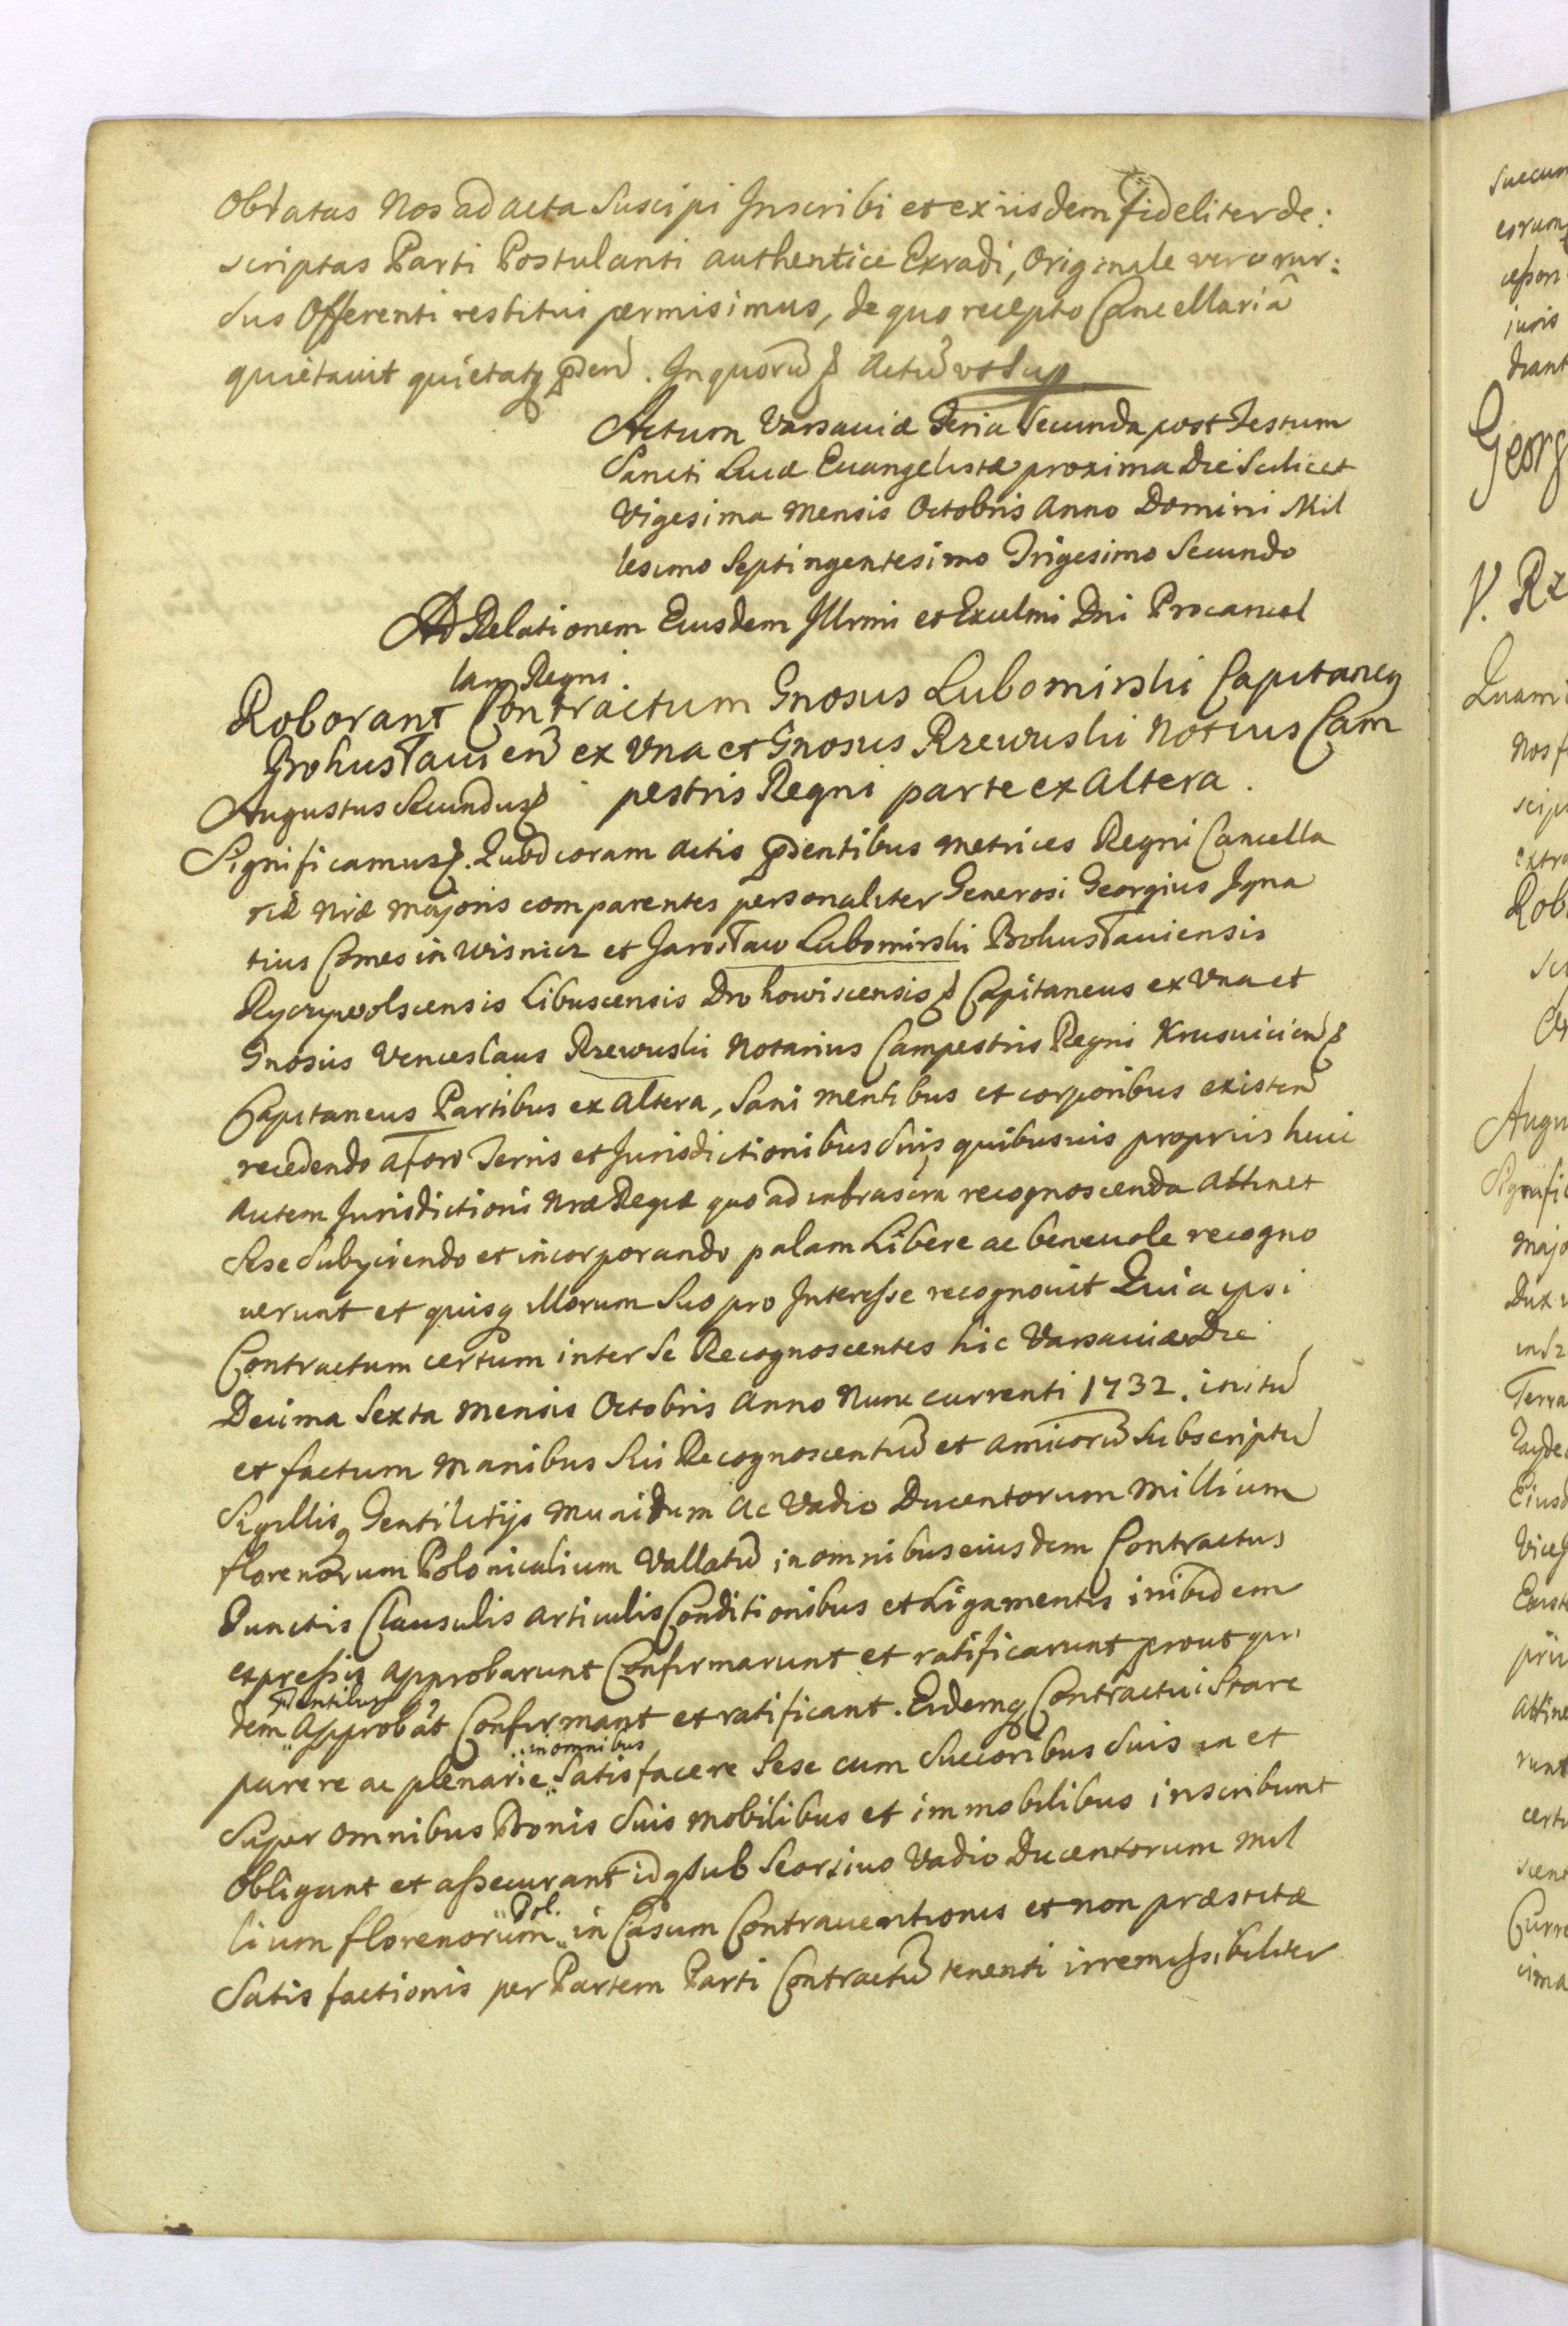 Oblatas Nos ad acta Suscipi Inscribi et ex iisdem fideliter de:
scriptas Parti Postulanti authentice Exradi, Originale vero rur:
sus Offerenti restitui permisimus, de quo recepto Cancellariā
quietavit quietatq pden̄. In quorū Actū ut Sup
Actum Varsaviæ Feria Secunda post Festum
Sancti Lucæ Evangelistæ proxima Die Scilicet
Vigesima Mensis Octobris Anno Domini Mil
lesimo Septingentesimo Trigesimo Secundo
Ad Relationem Eiusdem Illrmi et Exclmi Dni Procancel
larii Regni
Roborant Contractum Gnosus Lubomirski Capitaneq
Bohuslavien̄ ex Una et Gnosus Rzewuski Notrius Cam
pestris Regni parte ex Altera.
Augustus Secundus
Significamus. Quod coram Actis pdentibus Metrices Regni Cancella
riæ Nræ Majoris comparentes personaliter Generosi Georgius Igna
tius Comes in Wisnicz et Jaroslaw Lubomirski Bohuslaviensis
Ryczywolscensis Libuscensis Drohowiscensis Capitaneus ex Una et
Gnosus Venceslaus Rzewuski Notarius Campestris Regni Krusvicien̄
Capitaneus Partibus ex Altera, Sani mentibus et corporibus existen̄
recedendo a foro Terris et Jurisdictionibus Suis quibusvis propriis huic
Autem Jurisdictioni Nræ Regiæ quo ad infrascrā recognoscenda Attinet
Sese Subijciendo et incorporando palam Libere ac benevole recogno
verunt et quisq illorum Suo pro Interesse recognovit Quia ipsi
Contractum certum inter Se Recognoscentes hic Varsaviæ Die
Decima Sexta Mensis Octobris Anno Nunc currenti 1732. initū
et factum Manibus Sui Recognoscentiū et Amicorū Subscriptū
Sigillisq Gentilitijs Munitum Ac Vadio Ducentorum Millium
florenorum Polonicalium Vallatū in omnibus eiusdem Contractus
Punctis Clausulis Articulis Conditionibus et Ligamentis inibidem
expressis Approbarunt Confirmarunt et ratificarunt prout qui
pdentibus
dem Approbāt Confirmant et ratificant. Eidemq Contractui Stare
in omnibus
parere ac plenarie Satisfacere Sese cum Succoribus Suis in et
Super Omnibus Bonis Suis Mobilibus et immobilibus inscribunt
Obligant et assecurant idq Sub Seorsivo Vadio Ducentorum Mil
Pol.
lium florenorum in Casum Contraventionis et non præstitæ
Satisfactionis per Partem Parti Contractū tenenti irremissibiliter